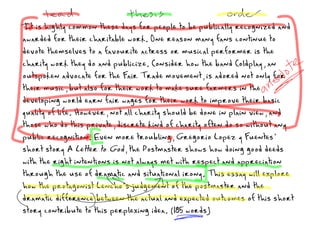 lead thesis order
It is highly common these days for people to be publically recognized and
awarded for their charitable work. One reason many fans continue to
devote themselves to a favourite actress or musical performer is the
charity work they do and publicize. Consider how the band Coldplay, an
outspoken advocate for the Fair Trade movement, is adored not only for
their music, but also for their work to make sure farmers in the
developing world earn fair wages for their work to improve their basic
quality of life. However, not all charity should be done in plain view, and
those who do this more private, discrete kind of charity often do so without any
public recognition. Even more troubling, Gregorio Lopez y Fuentes'
short story A Letter to God, the Postmaster shows how doing good deeds
with the right intentions is not always met with respect and appreciation
through the use of dramatic and situational irony. This essay will explore
how the protagonist Lencho's judgement of the postmaster and the
dramatic difference between the actual and expected outcomes of this short
story contribute to this perplexing idea. (185 words)